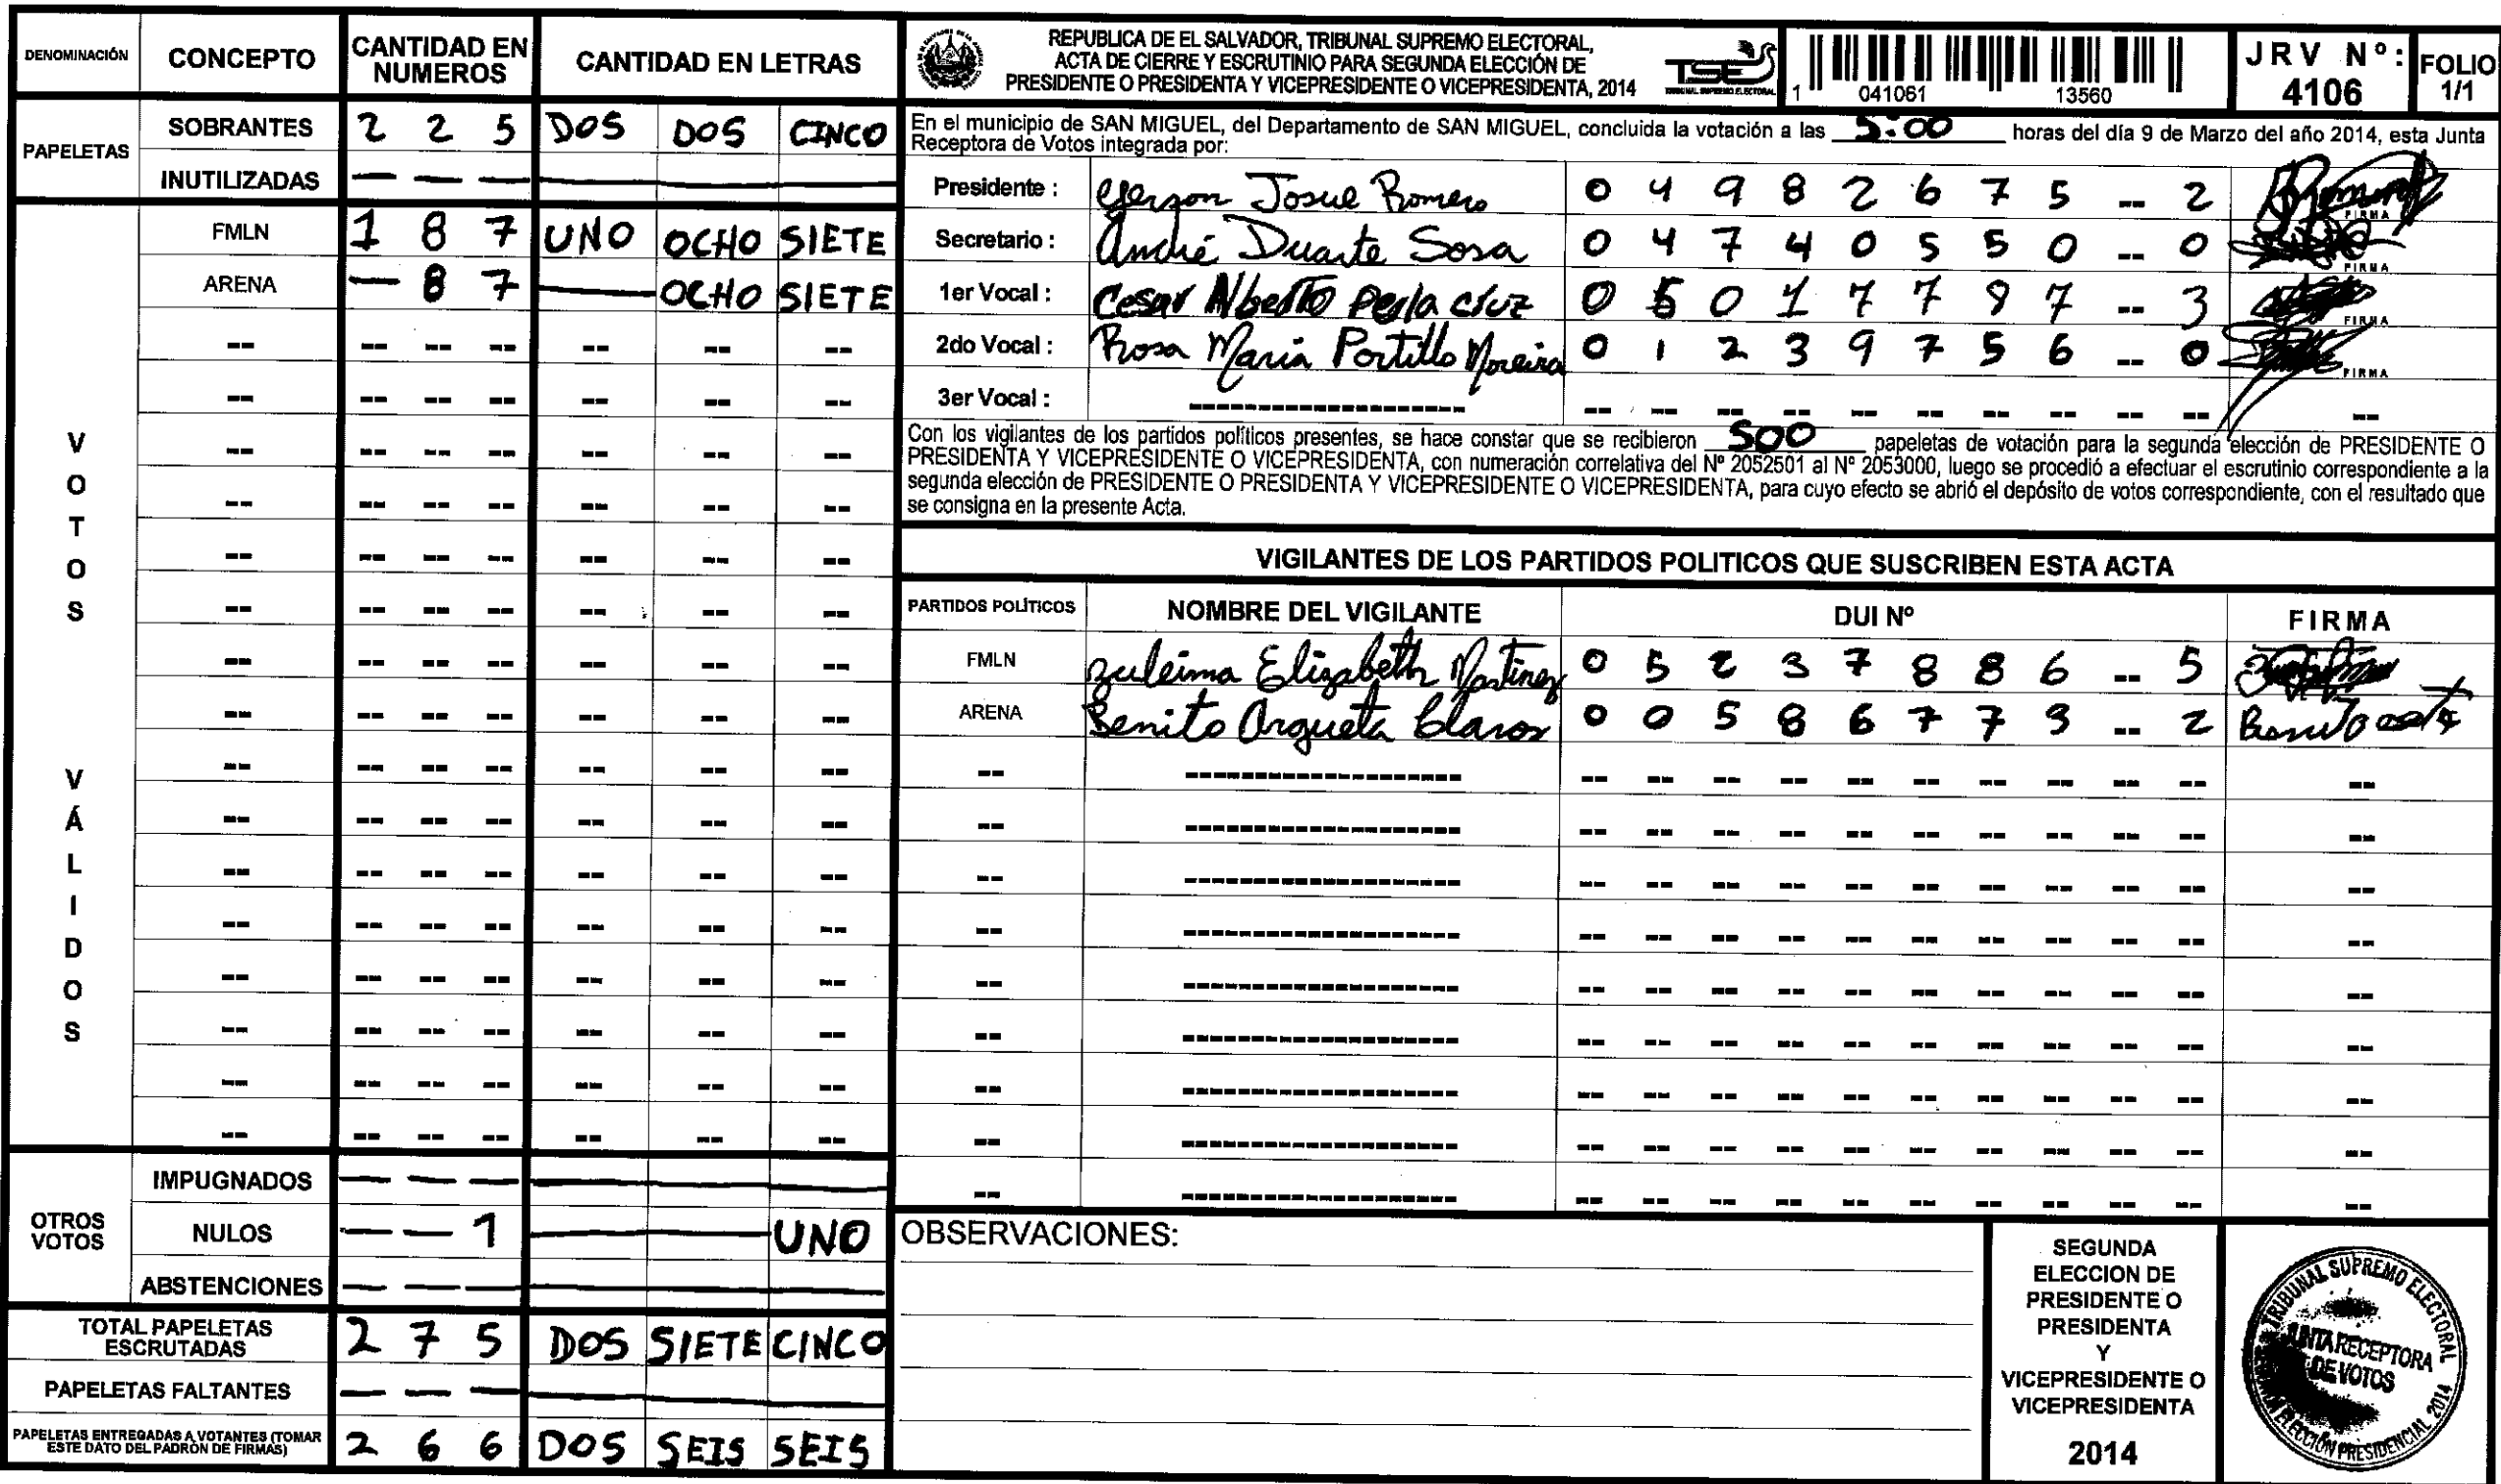 DENOMINACIÓN CONCEPTO CANTIDAD EN NUMEROS CANTIDAD EN LETRAS
PAPELETAS
SOBRANTES 2 2 5 DOS DOS CINCO
INUTILIZADAS — — —
VOTOS VÁLIDOS
FMLN 1 8 7 UNO OCHO SIETE
ARENA — 8 7 — OCHO SIETE
OTROS VOTOS
IMPUGNADOS — — —
NULOS — — 1 — UNO
ABSTENCIONES — — —
TOTAL PAPELETAS ESCRUTADAS 2 7 5 DOS SIETE CINCO
PAPELETAS FALTANTES — — —
PAPELETAS ENTREGADAS A VOTANTES (TOMAR ESTE DATO DEL PADRÓN DE FIRMAS) 2 6 6 DOS SEIS SEIS
REPUBLICA DE EL SALVADOR, TRIBUNAL SUPREMO ELECTORAL,
ACTA DE CIERRE Y ESCRUTINIO PARA SEGUNDA ELECCIÓN DE
PRESIDENTE O PRESIDENTA Y VICEPRESIDENTE O VICEPRESIDENTA, 2014
TSE
TRIBUNAL SUPREMO ELECTORAL
1 041061 13560
JRV Nº: 4106
FOLIO 1/1
En el municipio de SAN MIGUEL, del Departamento de SAN MIGUEL, concluida la votación a las 5:00 horas del día 9 de Marzo del año 2014, esta Junta
Receptora de Votos integrada por:
Presidente : Gerson Josue Romero 0 4 9 8 2 6 7 5 -- 2 FIRMA
Secretario : André Duarte Sosa 0 4 7 4 0 5 5 0 -- 0 FIRMA
1er Vocal : Cesar Alberto Perla cruz 0 5 0 1 7 7 9 7 -- 3 FIRMA
2do Vocal : Rosa Maria Portillo Moreira 0 1 2 3 9 7 5 6 -- 0 FIRMA
3er Vocal :
Con los vigilantes de los partidos políticos presentes, se hace constar que se recibieron 500 papeletas de votación para la segunda elección de PRESIDENTE O
PRESIDENTA Y VICEPRESIDENTE O VICEPRESIDENTA, con numeración correlativa del Nº 2052501 al Nº 2053000, luego se procedió a efectuar el escrutinio correspondiente a la
segunda elección de PRESIDENTE O PRESIDENTA Y VICEPRESIDENTE O VICEPRESIDENTA, para cuyo efecto se abrió el depósito de votos correspondiente, con el resultado que
se consigna en la presente Acta.
VIGILANTES DE LOS PARTIDOS POLITICOS QUE SUSCRIBEN ESTA ACTA
PARTIDOS POLÍTICOS NOMBRE DEL VIGILANTE DUI Nº FIRMA
FMLN Zuleima Elizabeth Martinez 0 5 2 3 7 8 8 6 -- 5
ARENA Benito Argueta Claros 0 0 5 8 6 7 7 9 -- 2 Benito
OBSERVACIONES:
SEGUNDA
ELECCION DE
PRESIDENTE O
PRESIDENTA
Y
VICEPRESIDENTE O
VICEPRESIDENTA
2014
TRIBUNAL SUPREMO ELECTORAL
JUNTA RECEPTORA
DE VOTOS
ELECCIÓN PRESIDENCIAL 2014